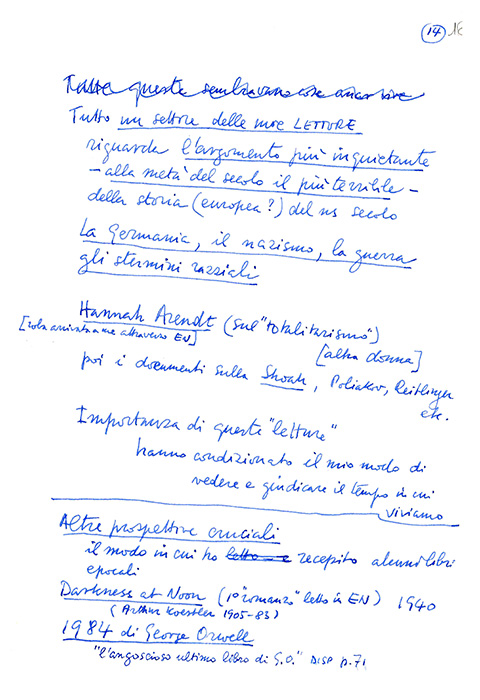 14 16
Tutte queste sembravano cose ancor vive
Tutto un settore delle mie LETTURE
riguarda l'argomento più inquietante
- alla metà del secolo il più terribile -
della storia (europea?) del ns secolo
La Germania, il nazismo, la guerra
gli stermini razziali
Hannah Arendt (sul "totalitarismo")
[roba arrivata a me attraverso EN]
[altra donna]
poi i documenti sulla Shoah, Poliakov, Reitlinger
etc.
Importanza di queste "letture"
hanno condizionato il mio modo di
vedere e giudicare il tempo in cui
viviamo
Altre prospettive cruciali
il modo in cui ho letto e recepito alcuni libri
epocali
Darkness at Noon (1º "romanzo" letto in EN) 1940
(Arthur Koestler 1905-83)
1984 di George Orwell
"l'angoscioso ultimo libro di G.O." DISP p.71